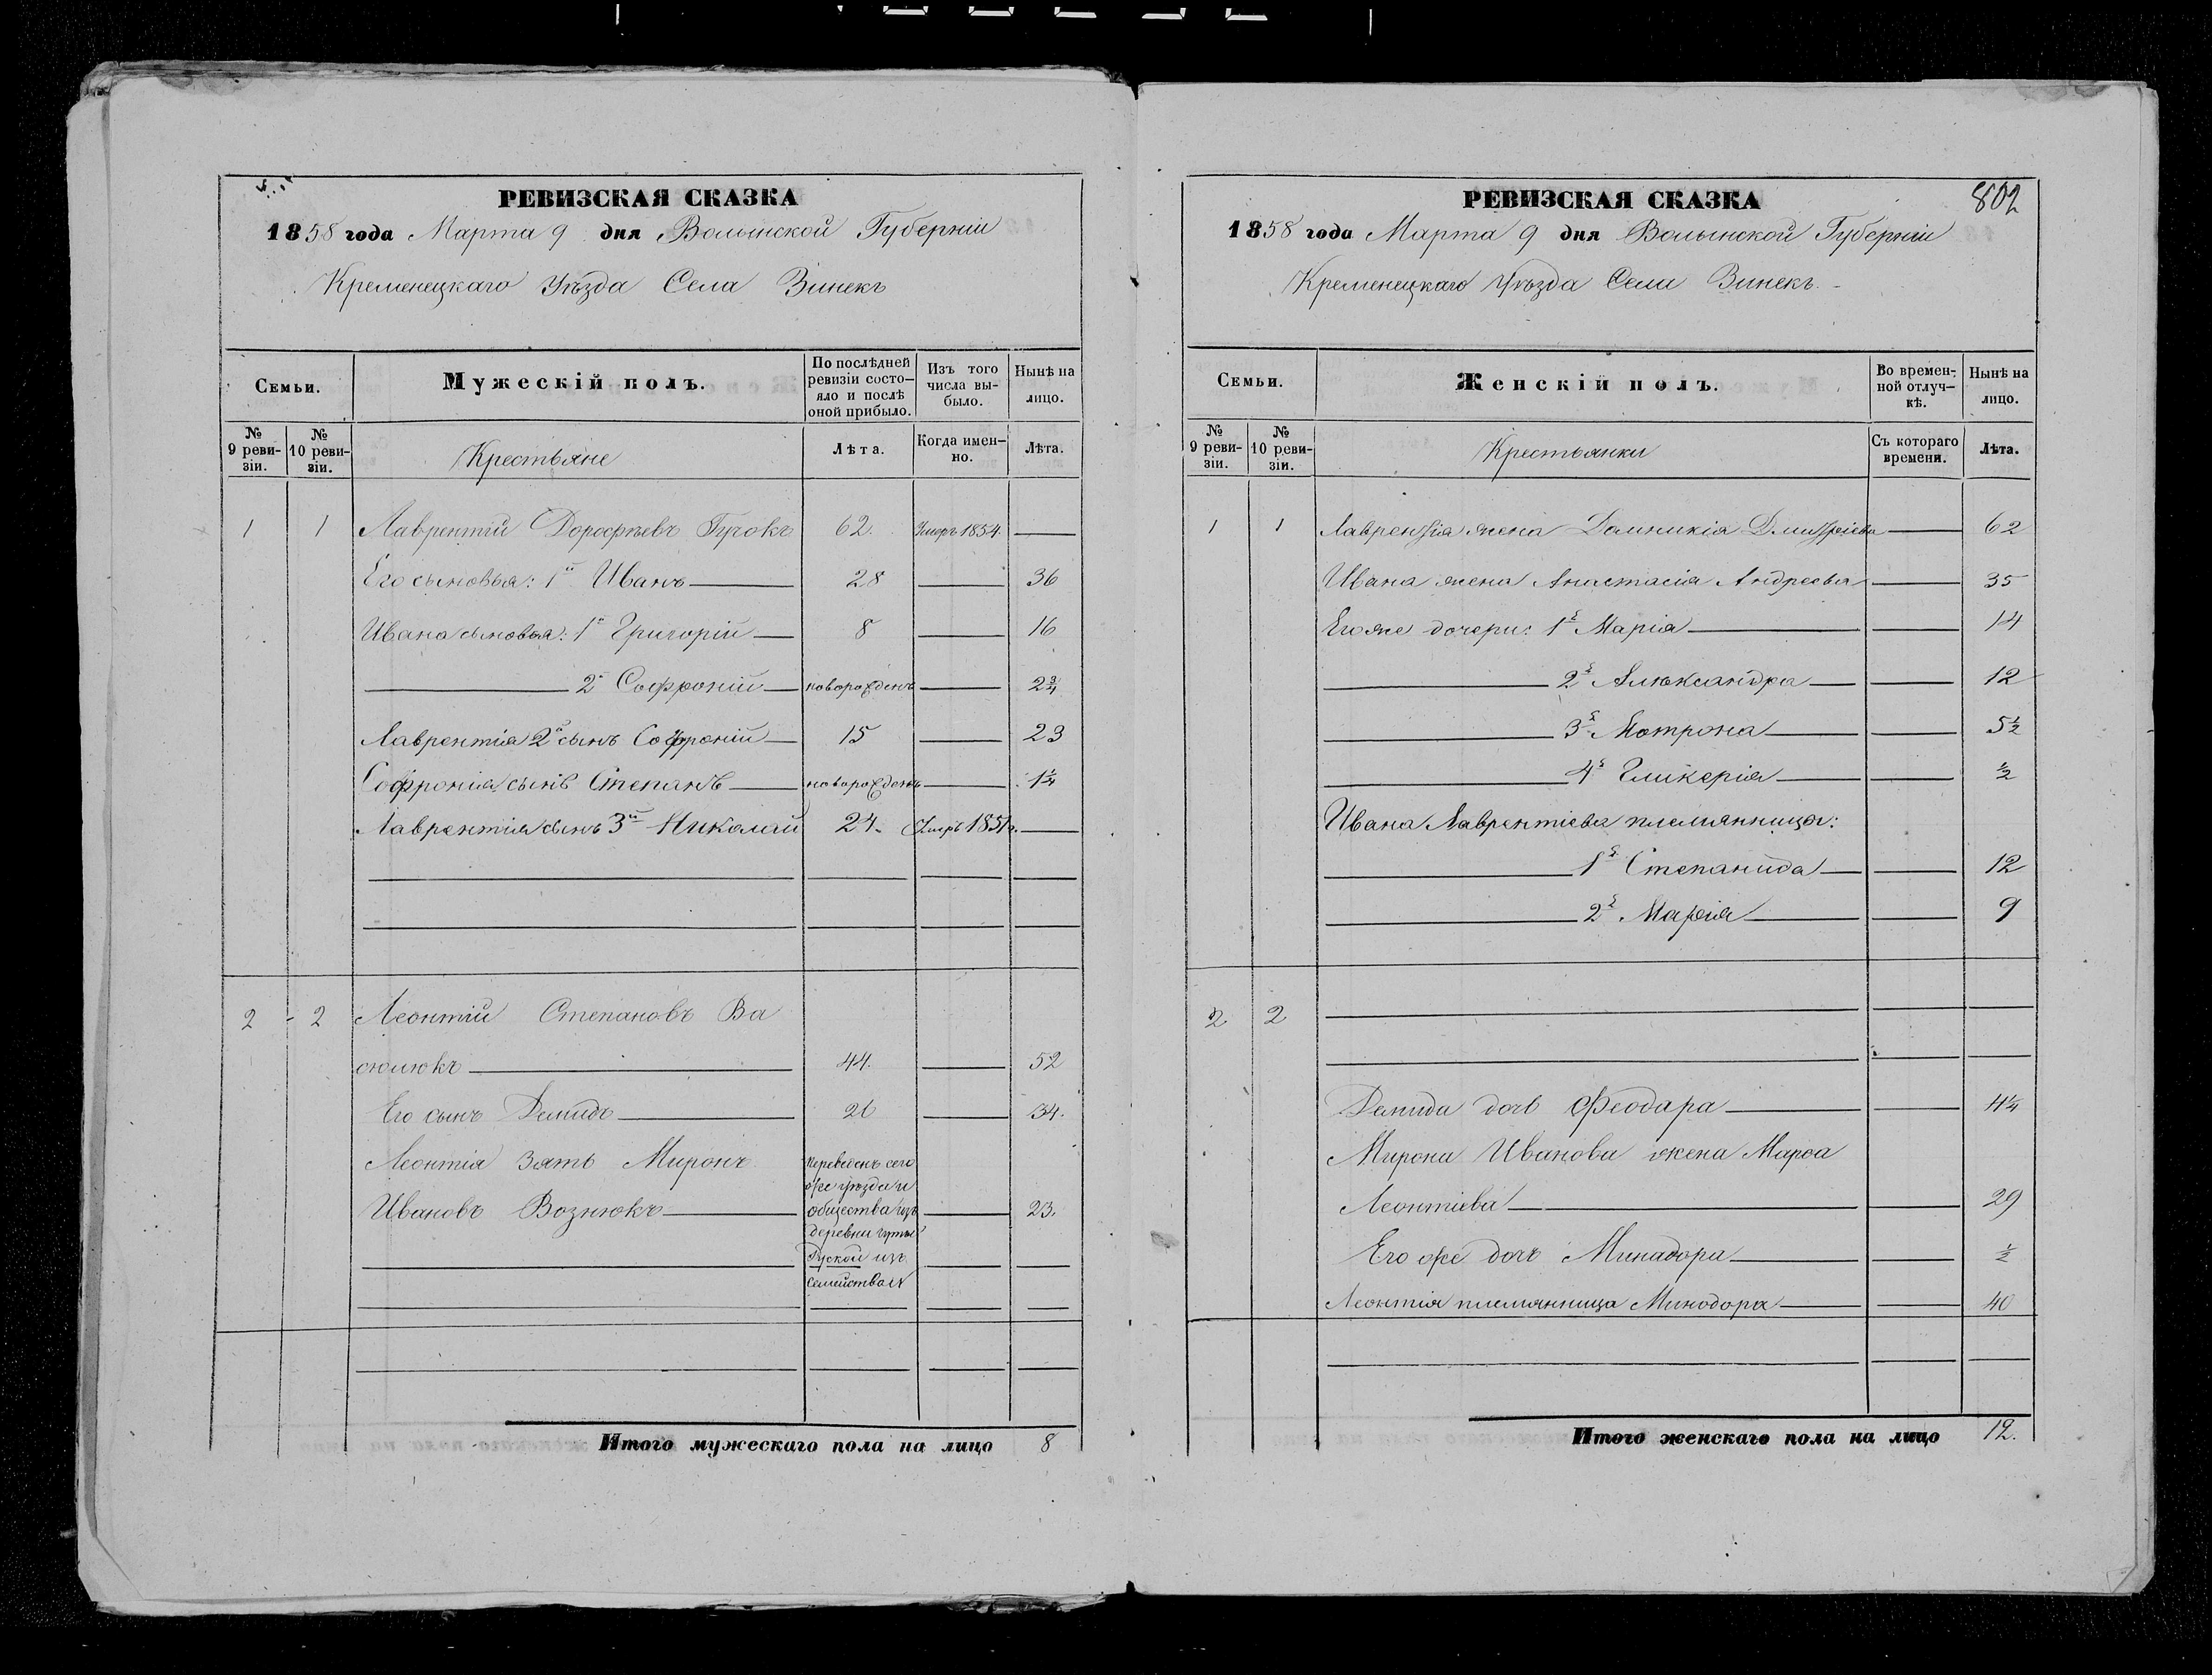 РЕВИЗСКАЯ СКАЗКА
1858 года Марта 9 дня Волынской Губерніи
Кременецкаго Уѣзда Села Зинекъ
Семьи.
Мужескій полъ.
По послѣдней ревизіи состо-
яло и послѣ оной прибыло.
Изъ того числа вы-
было.
Нынѣ на лицо.
№ 9 реви-
зіи.
№ 10 реви-
зіи.
Крестьяне
Лѣта.
Когда имен-
но.
Лѣта.
1 1 Лаврентій Дорофѣевъ Гучокъ 62. Умеръ 1854.
Его сыновья: 1й Иванъ 28 36
Ивана сыновья: 1й Григорій 8 16
2й Софроній новорожденъ 2 3/4
Лаврентія 2й сынъ Софроній 15 23
Софронія сынъ Степанъ новорожденъ 1 1/4
Лаврентія сынъ 3й Николай 24. Умеръ 1851г.
2 2 Леонтій Степановъ Ва
сюлюкъ 44. 52
Его сынъ Демидъ 26 34.
Леонтія Зять Миронъ
Ивановъ Вознюкъ 23.
Переведенъ сего
же уѣзда и
общества изъ
деревни Гуты
Руской изъ
семейства
Итого мужескаго пола на лицо 8
РЕВИЗСКАЯ СКАЗКА
802
1858 года Марта 9 дня Волынской Губерніи
Кременецкаго Уѣзда Села Зинекъ.
Семьи.
Женскій полъ.
Во времен-
ной отлуч-
кѣ.
Нынѣ на лицо.
№ 9 реви-
зіи.
№ 10 реви-
зіи.
Крестьянки
Съ котораго времени.
Лѣта.
1 1 Лаврентія жена Домникія Дмитріева 62
Ивана жена Анастасія Андреева 35
Его же дочери: 1я Марія 14
2я Алѣксандра 12
3я Мотрона 5 1/2
4я Гликерія 1/2
Ивана Лаврентіева племянницы:
1я Степанида 12
2я Марія 9
2 2
Демида дочь Феодора 4 1/4
Мирона Иванова жена Марѳа
Леонтіева 29
Его же дочь Минадора 1/2
Леонтія племянница Минодора 40
Итого женскаго пола на лицо 12.